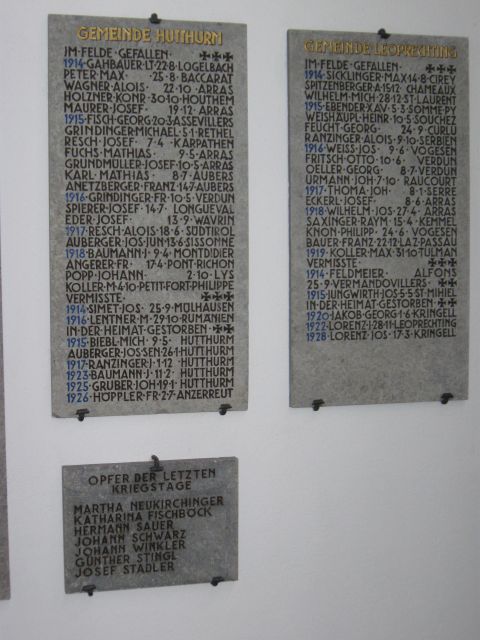 GEMEINDE HUTTHURM
IM·FELDE·GEFALLEN·
1914·GAHBAUER·LT·22·8·LOGELBACH
PETER·MAX · 25·8·BACCARAT
WAGNER·ALOIS· 22·10·ARRAS
HOLZNER·KONR·30·10·HOUTHEM
MAURER·JOSEF· 19·12·ARRAS
1915·FISCH·GEORG·20·3·ASSEVILLERS
GRINDINGER·MICHAEL·5·1·RETHEL
RESCH·JOSEF· 7·4·KARPATHEN
FUCHS·MATHIAS· 9·5·ARRAS
GRUNDMÜLLER·JOSEF·10·5·ARRAS
KARL·MATHIAS· 8·7·AUBERS
ANETZBERGER·FRANZ·14·7·AUBERS
1916·GRINDINGER·FR·10·5·VERDUN
SPIERER·JOSEF·14·7·LONGUEVAL
EDER·JOSEF· 13·9·WAVRIN
1917·RESCH·ALOIS·18·6·SÜDTIROL
AUBERGER·JOS·JUN·13·6·SISSONNE
1918·BAUMANN·J·9·4·MONTDIDIER
ANGERER·FR· 17·4·PONT·RICHON
POPP·JOHANN· 2·10·LYS
KOLLER·M·4·10·PETIT·FORT·PHILIPPE
VERMISSTE·
1914·SIMET·JOS·25·9·MÜLHAUSEN
1916·LENTNER·M·29·10·RUMÄNIEN
IN·DER·HEIMAT·GESTORBEN
1915·BIEBL·MICH·9·5·HUTTHURM
AUBERGER·JOS·SEN·26·1·HUTTHURM
1917·RANZINGER·J·1·12·HUTTHURM
1923·BAUMANN·J·11·2·HUTTHURM
1925·GRUBER·JOH·19·1·HUTTHURM
1926·HÖPPLER·FR·2·7·ANZERREUT
GEMEINDE·LEOPRECHTING
IM·FELDE·GEFALLEN·
1914·SICKLINGER·MAX·14·8·CIREY
SPITZENBERGER·A·15·12·CHAMEAUX
WILHELM·MICH·28·12·ST·LAURENT
1915·EBENDER·XAV·5·3·SOMME·PY
WEISHÄUPL·HEINR·10·5·SOUCHEZ
FEUCHT·GEORG· 24·9·CURLÜ
RANZINGER·ALOIS·9·10·SERBIEN
1916·WEISS·JOS· 9·6·VOGESEN
FRITSCH·OTTO·10·6·VERDUN
OELLER·GEORG· 8·7·VERDUN
URMANN·JOH·7·10·RAUCOURT
1917·THOMA·JOH· 8·1·SERRE
ECKERL·JOSEF· 8·6·ARRAS
1918·WILHELM·JOS·27·4·ARRAS
SAXINGER·RAYM·15·4·KEMMEL
KNON·PHILIPP·24·6·VOGESEN
BAUER·FRANZ·22·12·LAZ·PASSAU
1919·KOLLER·MAX·31·10·TULMAN
VERMISSTE·
1914·FELDMEIER· ALFONS
25·9·VERMANDOVILLERS·
1915·JUNGWIRTH·JOS·5·5·ST·MIHIEL
IN·DER·HEIMAT·GESTORBEN
1920·JAKOB·GEORG·1·6·KRINGELL
1922·LORENZ·J·28·11·LEOPRECHTING
1928·LORENZ·JOS·17·3·KRINGELL
OPFER DER LETZTEN
KRIEGSTAGE
MARTHA NEUKIRCHINGER
KATHARINA FISCHBÖCK
HERMANN SAUER
JOHANN SCHWARZ
JOHANN WINKLER
GÜNTHER STINGL
JOSEF STADLER